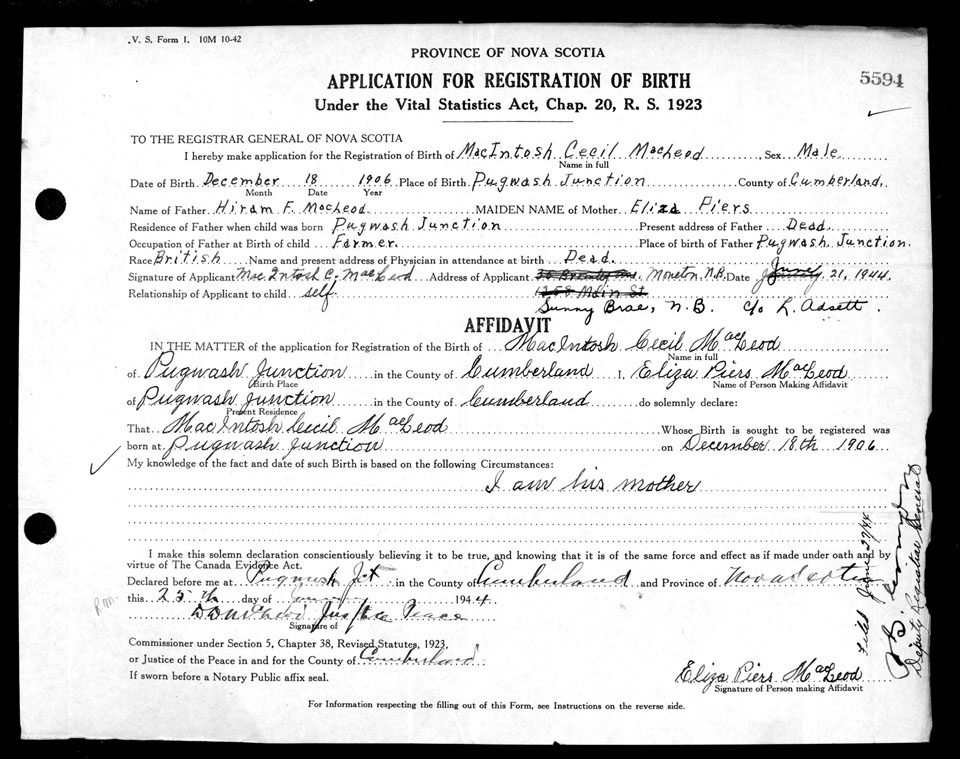 V. S. Form 1. 10M 10-42
PROVINCE OF NOVA SCOTIA
APPLICATION FOR REGISTRATION OF BIRTH
5594
Under the Vital Statistics Act, Chap. 20, R. S. 1923
TO THE REGISTRAR GENERAL OF NOVA SCOTIA
I hereby make application for the Registration of Birth of MacIntosh Cecil MacLeod Sex Male
Name in full
Date of Birth December 18 1906 Place of Birth Pugwash Junction County of Cumberland.
Month Date Year
Name of Father Hiram F. MacLeod MAIDEN NAME of Mother Eliza Piers
Residence of Father when child was born Pugwash Junction Present address of Father Dead.
Occupation of Father at Birth of child Farmer. Place of birth of Father Pugwash Junction.
Race British Name and present address of Physician in attendance at birth Dead.
Signature of Applicant MacIntosh C. MacLeod Address of Applicant Moncton, N.B. Date June 21, 1944.
Relationship of Applicant to child self. 1258 Main St
Sunny Brae, N.B. c/o L. Adsett.
AFFIDAVIT
IN THE MATTER of the application for Registration of the Birth of MacIntosh Cecil MacLeod
Name in full
of Pugwash Junction in the County of Cumberland I, Eliza Piers MacLeod
Birth Place Name of Person Making Affidavit
of Pugwash Junction in the County of Cumberland do solemnly declare:
Present Residence
That MacIntosh Cecil MacLeod Whose Birth is sought to be registered was
born at Pugwash Junction on December 18th 1906
My knowledge of the fact and date of such Birth is based on the following Circumstances:
I am his mother
I make this solemn declaration conscientiously believing it to be true, and knowing that it is of the same force and effect as if made under oath and by
virtue of The Canada Evidence Act.
Declared before me at Pugwash Jct in the County of Cumberland and Province of Nova Scotia
this 25th day of 1944
Jus Peace
Signature of
Commissioner under Section 5, Chapter 38, Revised Statutes, 1923,
or Justice of the Peace in and for the County of Cumberland
If sworn before a Notary Public affix seal.
Eliza Piers MacLeod
Signature of Person making Affidavit
For Information respecting the filling out of this Form, see Instructions on the reverse side.
Filed June 27/44
Deputy Registrar General